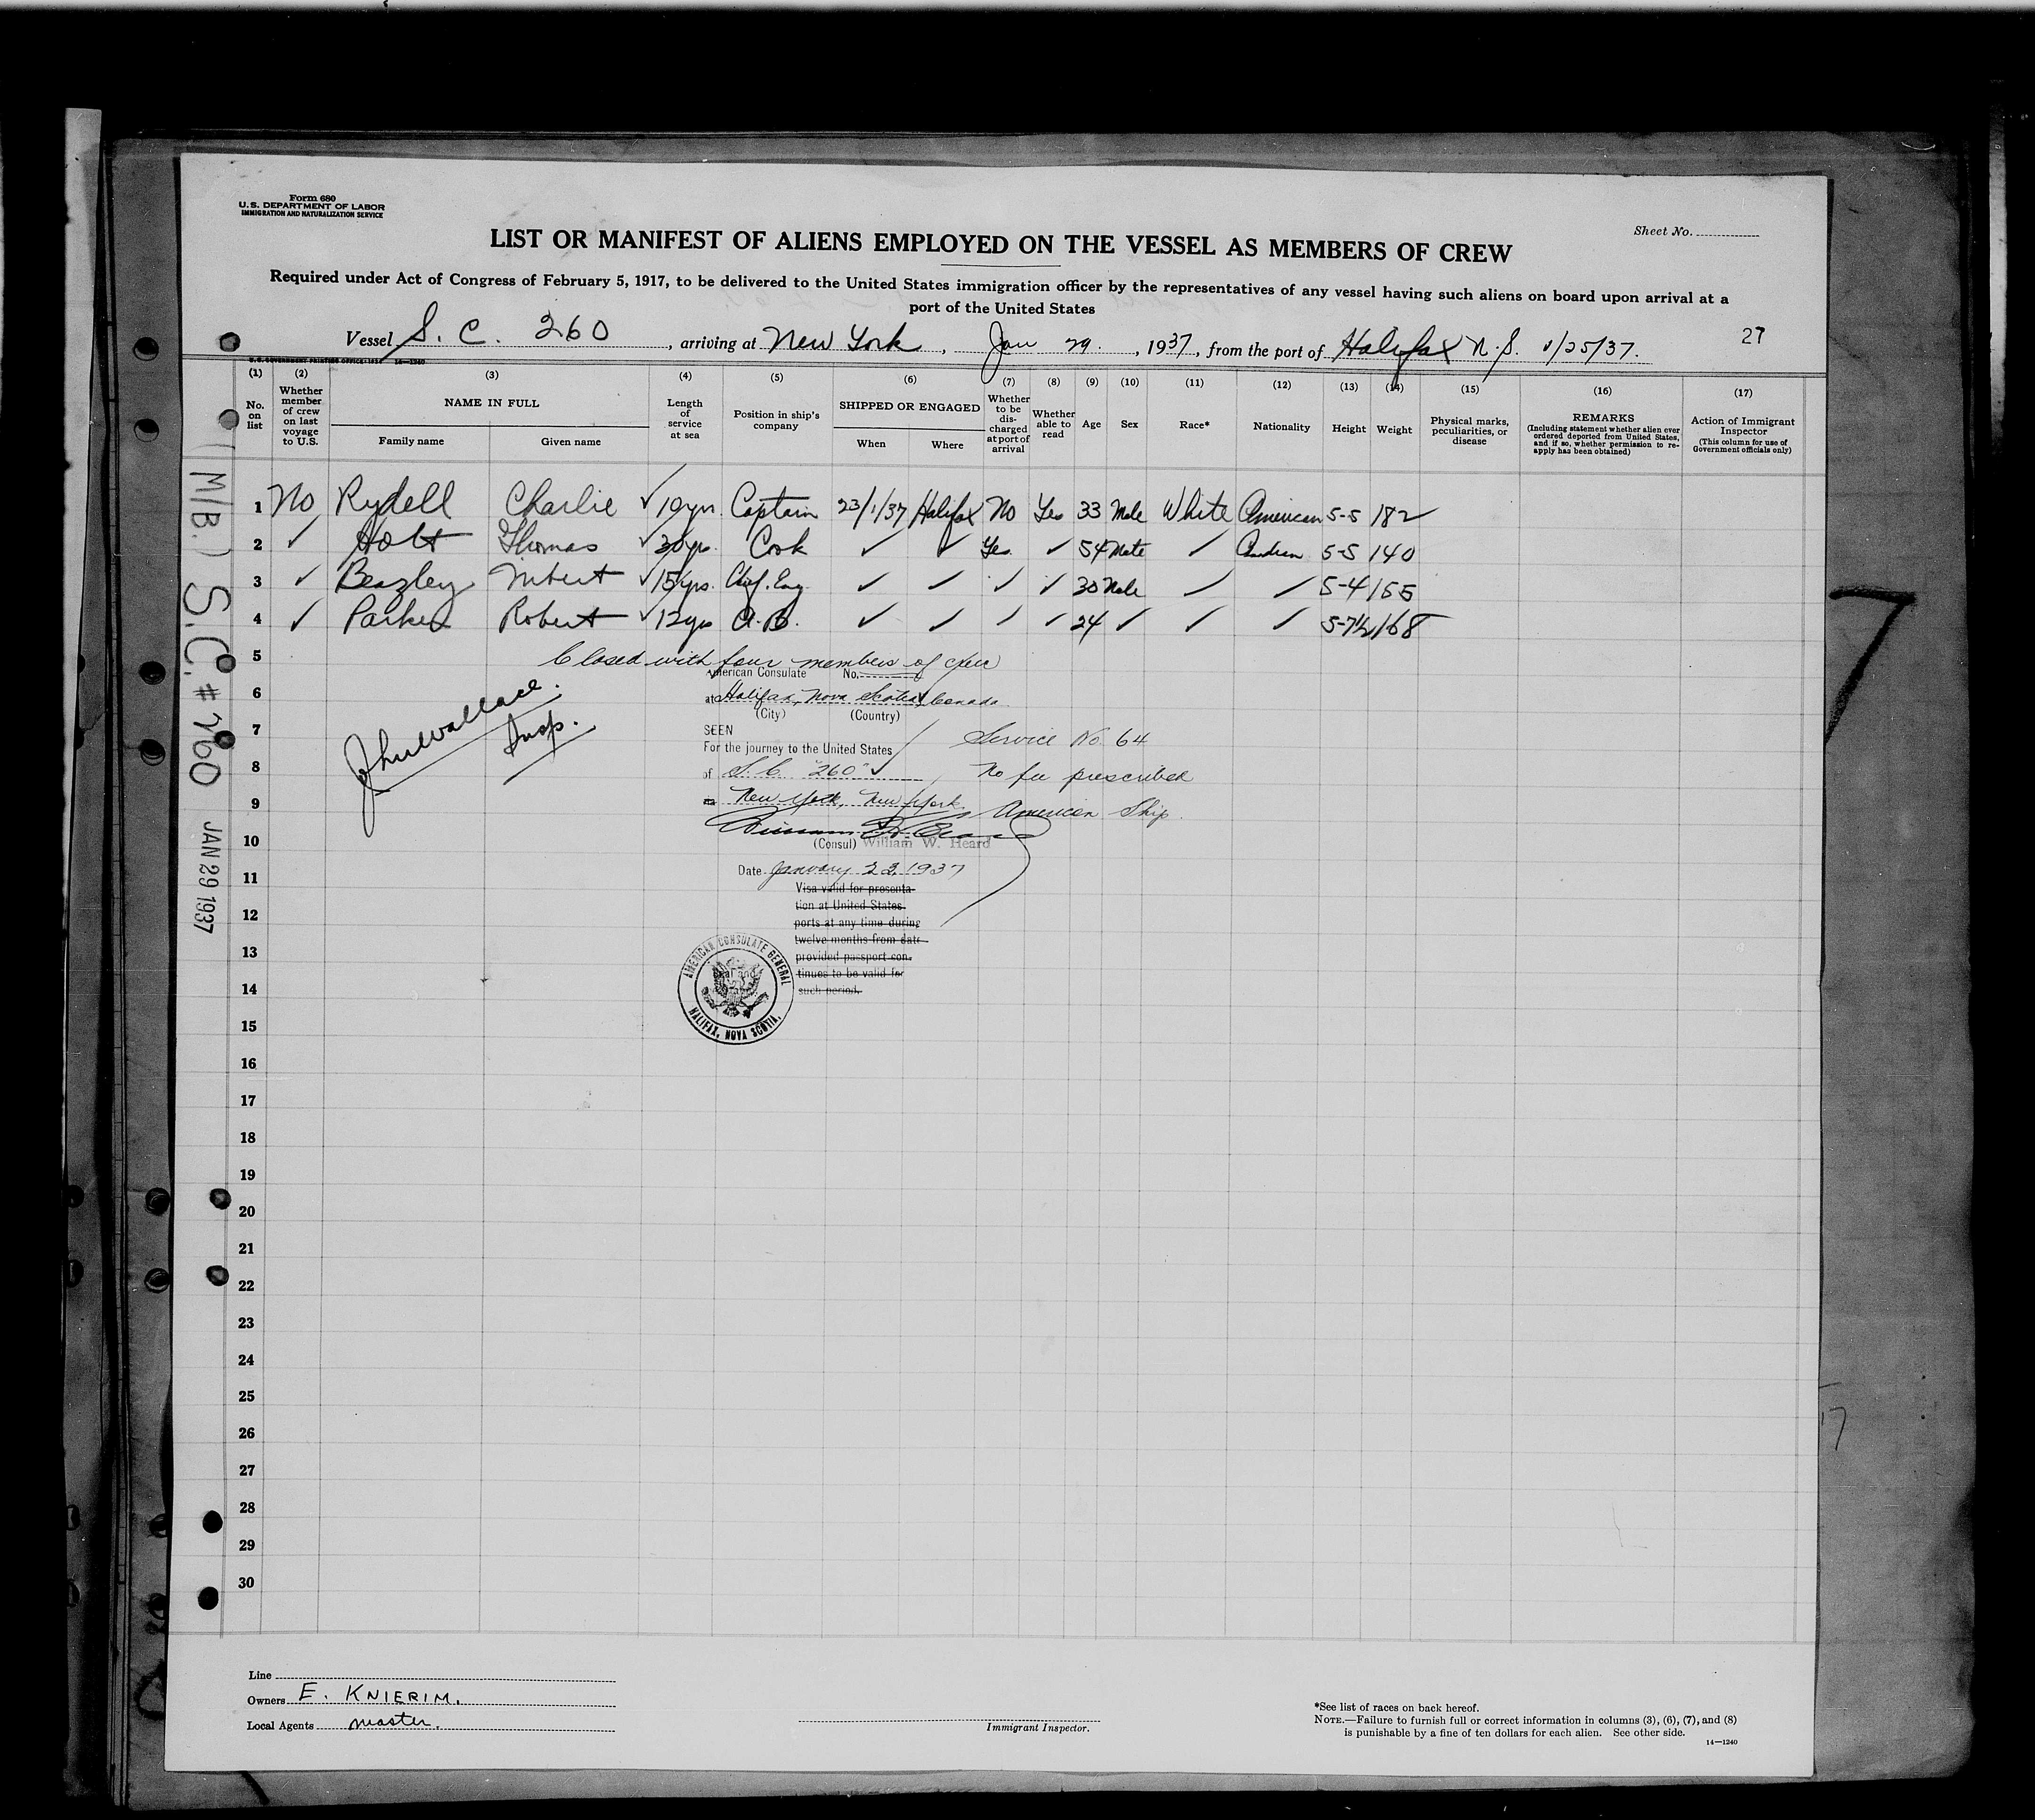 Form 680
U.S. DEPARTMENT OF LABOR
IMMIGRATION AND NATURALIZATION SERVICE
Sheet No.
LIST OR MANIFEST OF ALIENS EMPLOYED ON THE VESSEL AS MEMBERS OF CREW
Required under Act of Congress of February 5, 1917, to be delivered to the United States immigration officer by the representatives of any vessel having such aliens on board upon arrival at a
port of the United States
Vessel S. C. 260, arriving at New York, Jan 29., 1937, from the port of Halifax N.S. 1/25/37.
27
U.S. GOVERNMENT PRINTING OFFICE 14—1240
(1) (2) (3) (4) (5) (6) (7) (8) (9) (10) (11) (12) (13) (14) (15) (16) (17)
No. on list
Whether member of crew on last voyage to U.S.
NAME IN FULL
Family name
Given name
Length of service at sea
Position in ship's company
SHIPPED OR ENGAGED
When
Where
Whether to be discharged at port of arrival
Whether able to read
Age
Sex
Race*
Nationality
Height
Weight
Physical marks, peculiarities, or disease
REMARKS
(Including statement whether alien ever ordered deported from United States, and if so, whether permission to re-apply has been obtained)
Action of Immigrant Inspector
(This column for use of Government officials only)
1 No Rydell Charlie ✓ 10yrs. Captain 23/1/37 Halifax No Yes 33 Male White American 5-5 182
2 ✓ Holt Thomas ✓ 30yrs. Cook ✓ ✓ Yes ✓ 54 Male ✓ 5-5 140
3 ✓ Beazley ✓ 15yrs. Chief. Eng ✓ ✓ ✓ ✓ 30 Male ✓ ✓ 5-4 155
4 ✓ Parker Robert ✓ 12yrs A.B. ✓ ✓ ✓ ✓ 24 ✓ ✓ ✓ 5-7½ 168
5
Closed with four members of crew
American Consulate No.
6
at Halifax, Nova Scotia, Canada
(City) (Country)
John Wallace.
Insp.
7
SEEN
Service No. 64
For the journey to the United States
8
of S. C. "260" ✓
No fee prescribed
9
New York, New York
American Ship.
10
(Consul) William W. Heard
Date January 23, 1937
11
Visa valid for presenta-
tion at United States
12
ports at any time during
twelve months from date
13
provided passport con-
tinues to be valid for
14
such period.
AMERICAN CONSULATE GENERAL
HALIFAX, NOVA SCOTIA.
15
16
17
18
19
20
21
22
23
24
25
26
27
28
29
30
(M/B.) S.C. #260 JAN 29 1937
7
17
Line
Owners E. KNIERIM.
Local Agents master.
Immigrant Inspector.
*See list of races on back hereof.
NOTE.—Failure to furnish full or correct information in columns (3), (6), (7), and (8)
is punishable by a fine of ten dollars for each alien. See other side.
14—1240